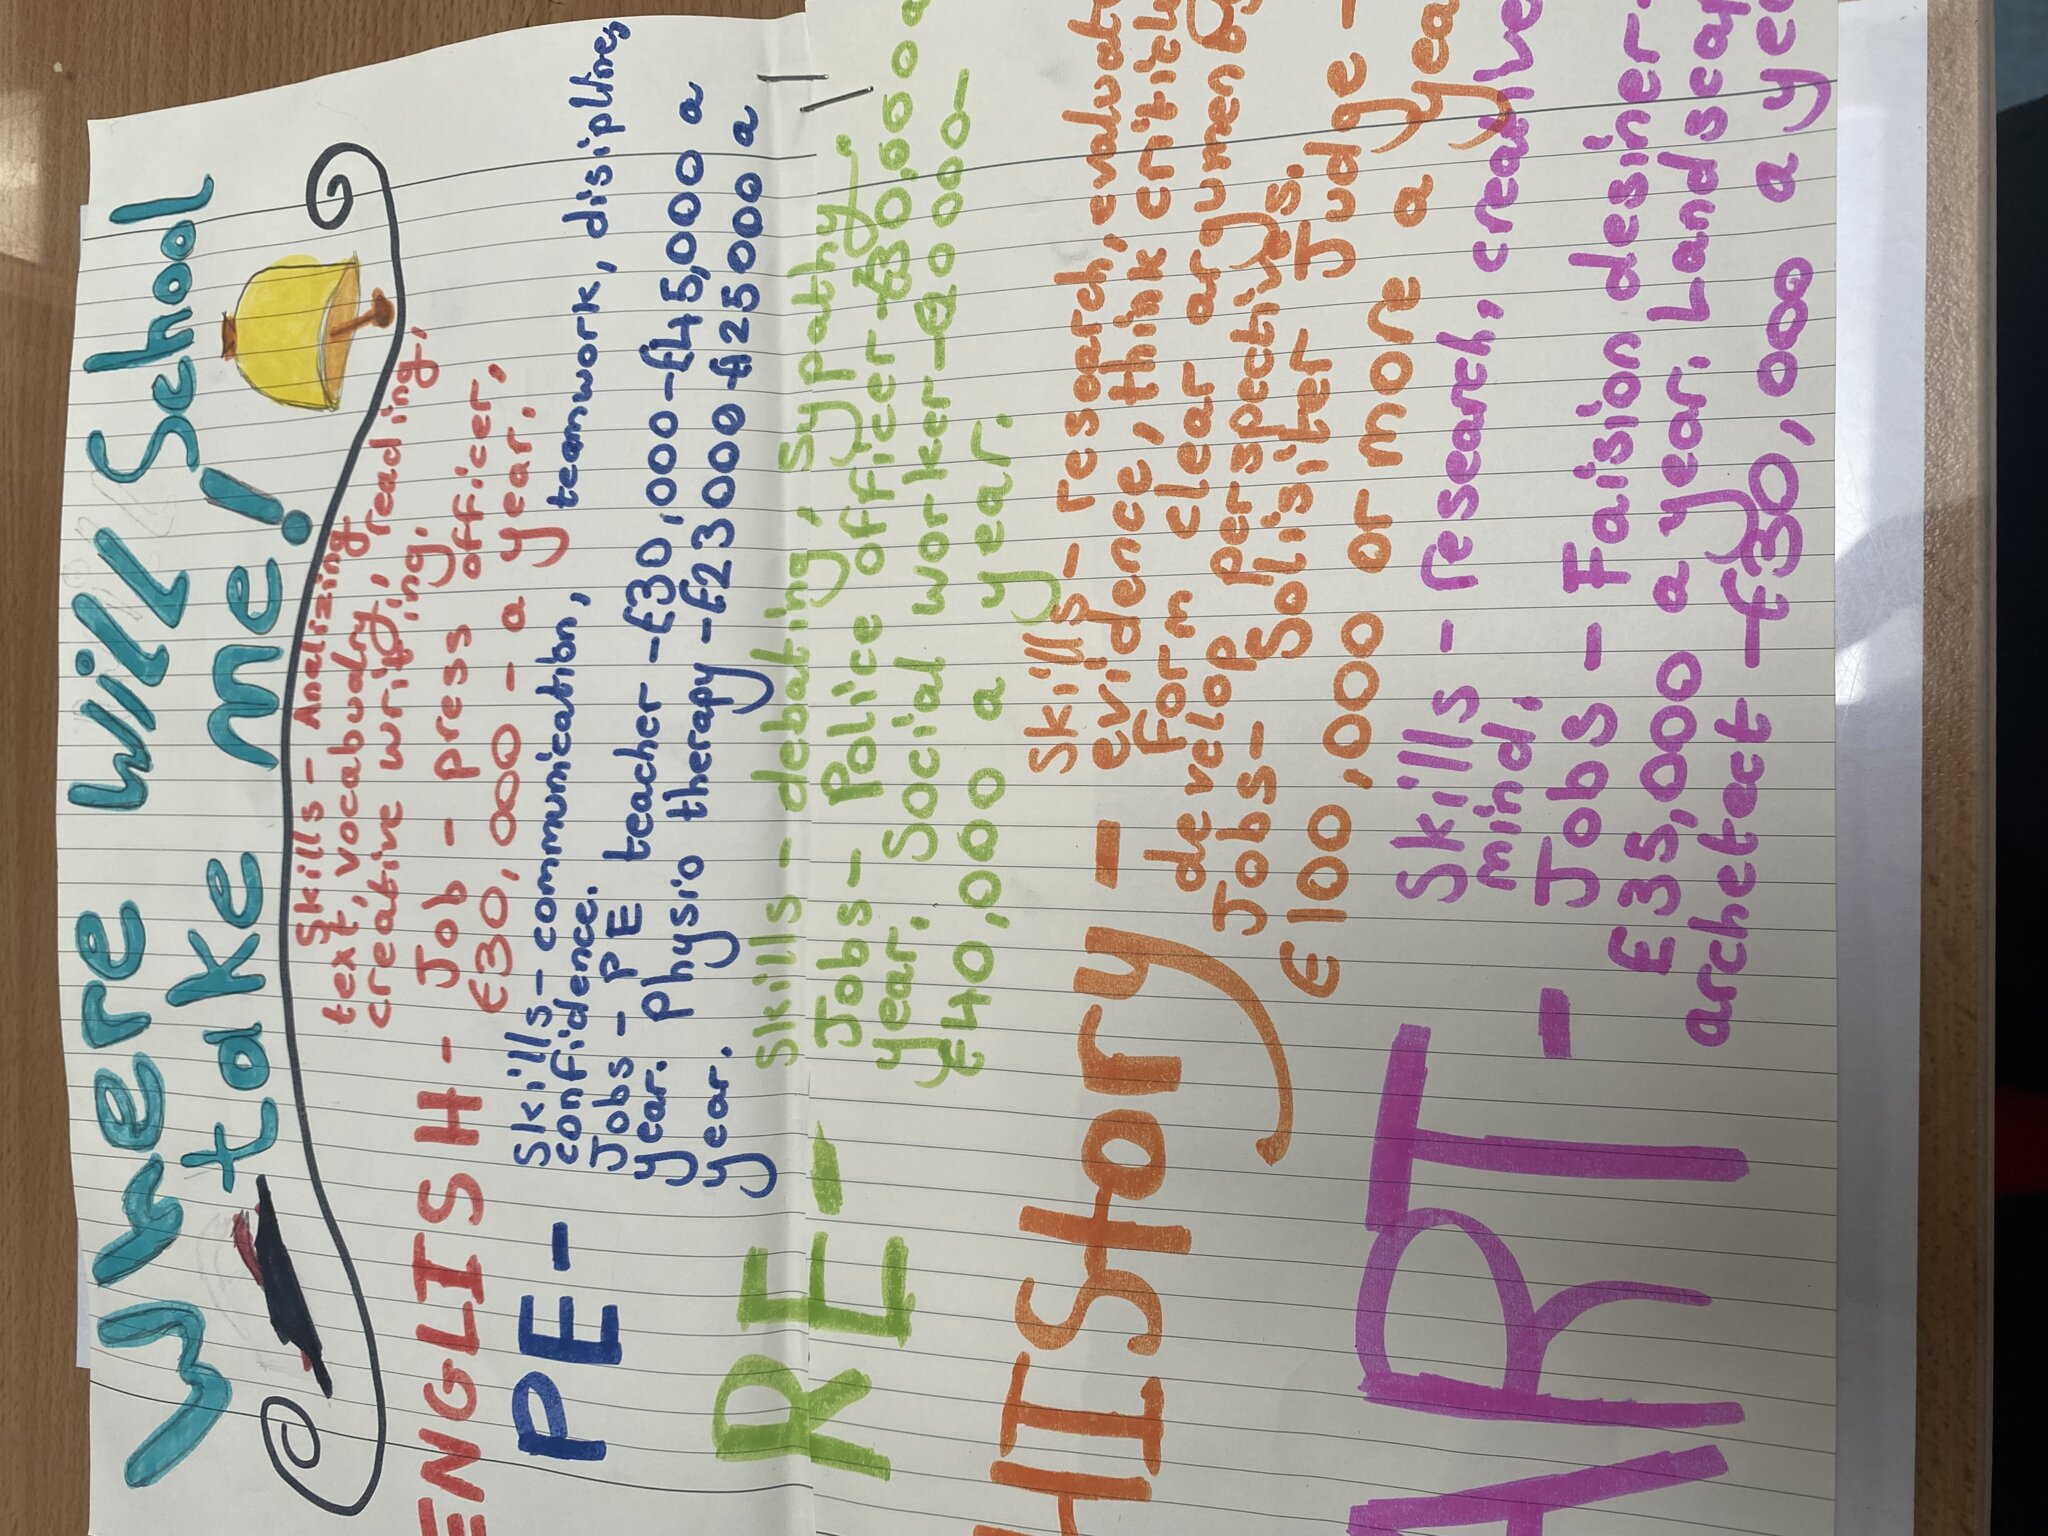 Where will School
take me!
Skills - Analizing
text, vocabualry, reading,
creative writing.
ENGLISH - Job - press officer,
£30,000 - a year.
PE - Skills - communication, teamwork, disipline,
confidence.
Jobs - PE teacher - £30,000 - £45,000 a
year. Physio therapy - £23000 - £25000 a
year.
RE - Skills - debating, sypathy.
Jobs - Police officer - £30,000 a
year. Social worker -
£40,000 a year.
HIStory - Skills - research, evaluat
evidence, think critical
form clear arguments,
develop perspectives.
Jobs - Solisiter Judge -
£100,000 or more a yea
ART - Skills - research, creative
mind.
Jobs - Faision desiner -
£35,000 a year. Landscap
archetect - £30,000 a yea